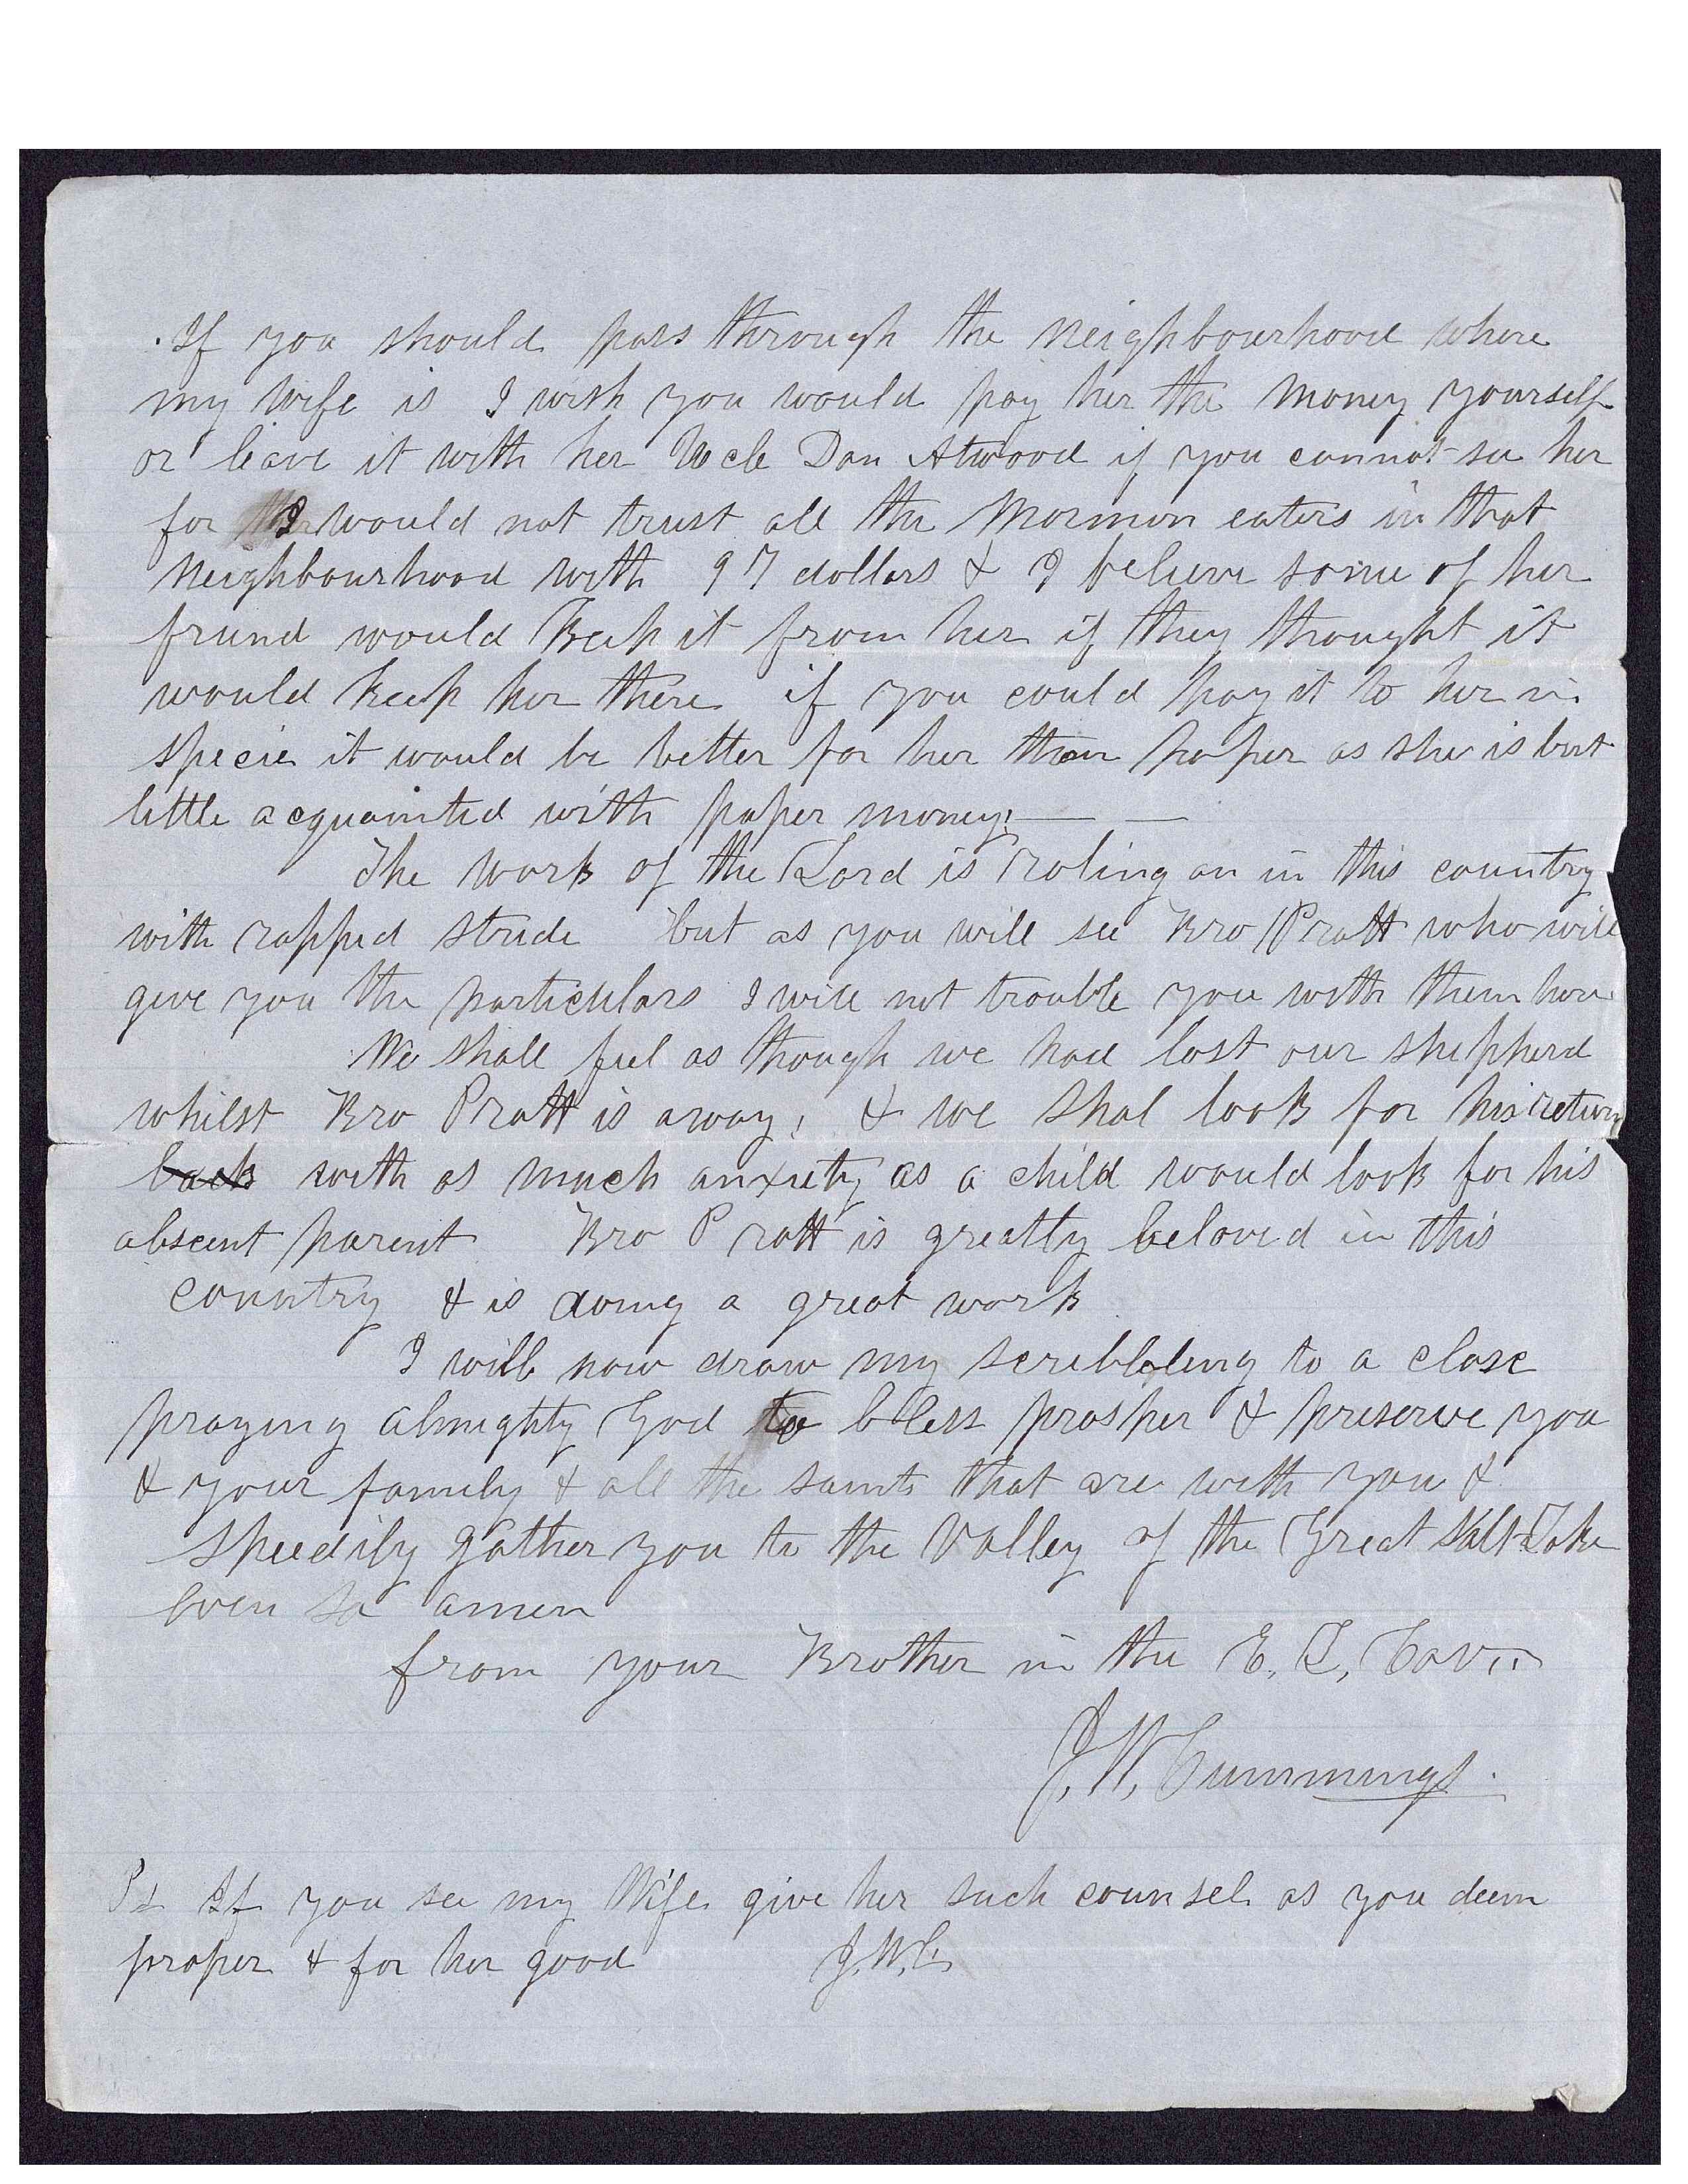 If you should pass through the neighbourhood where
my wife is I wish you would pay her the money yourself
or leave it with her Uncle Dan Atwood if you cannot see her
for I would not trust all the Mormon eaters in that
neighbourhood with 97 dollars & I believe some of her
friend would Keep it from her if they thought it
would keep her there if you could pay it to her in
specie it would be better for her than paper as she is but
little acquainted with paper money. — —
The work of the Lord is roling on in this country
with rapped stride but as you will see Bro Pratt who will
give you the particulars I will not trouble you with them here
We shall feel as though we had lost our shepherd
whilst Bro Pratt is away, & we shal look for his return
back with as much anxiety as a child would look for his
absent parent Bro Pratt is greatly beloved in this
country & is doing a great work
I will now draw my scribbleing to a close
praying almighty God to bless prosper & preserve you
& your family & all the saints that are with you &
speedily gather you to the Valley of the Great Salt Lake
even so amen
from your Brother in the E. L. Cov..
J. W. Cummings.
Ps If you see my Wife give her such counsel as you deem
proper & for her good J. W. C.